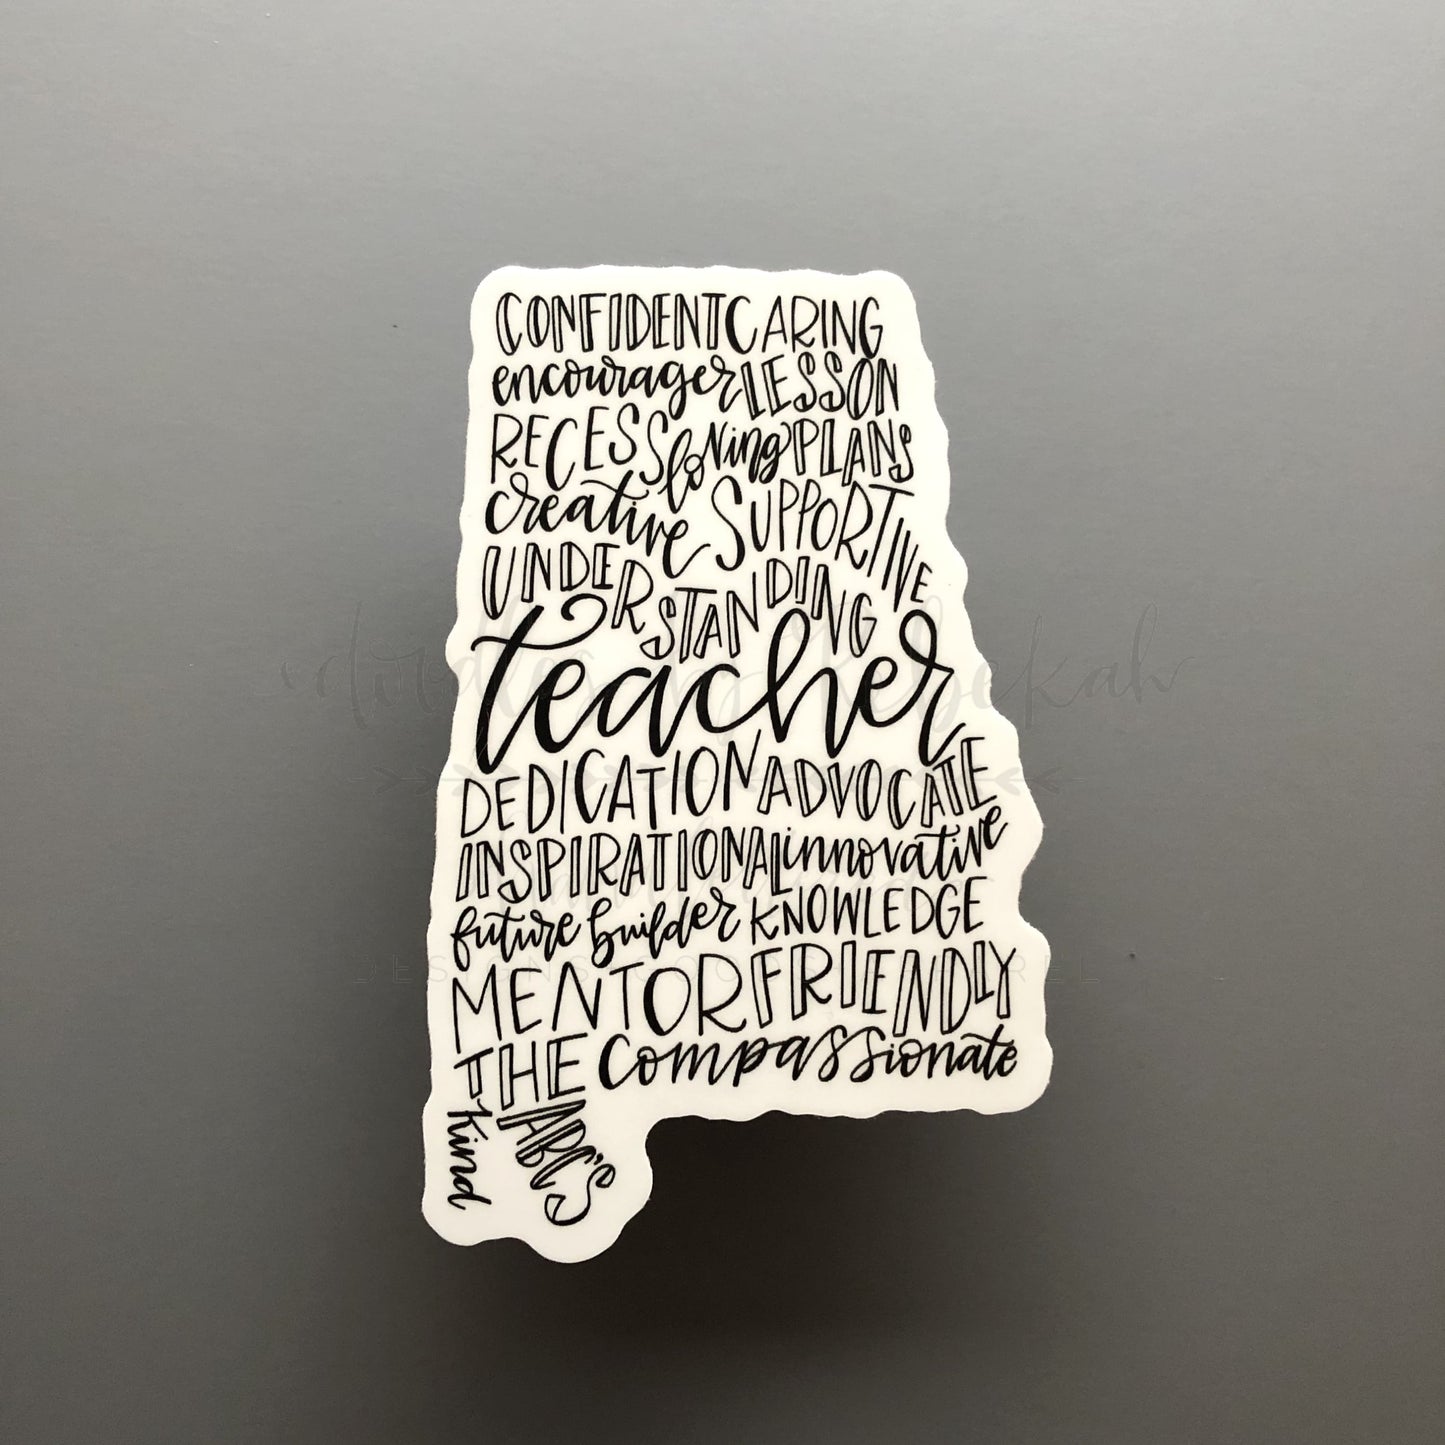 CONFIDENT CARING
encourager LESSON
RECESS loving PLANS
creative SUPPORTIVE
UNDERSTANDING
teacher
DEDICATION ADVOCATE
INSPIRATIONAL innovative
future builder KNOWLEDGE
MENTOR FRIENDLY
THE compassionate
kind ABC'S
doodles by Rebekah